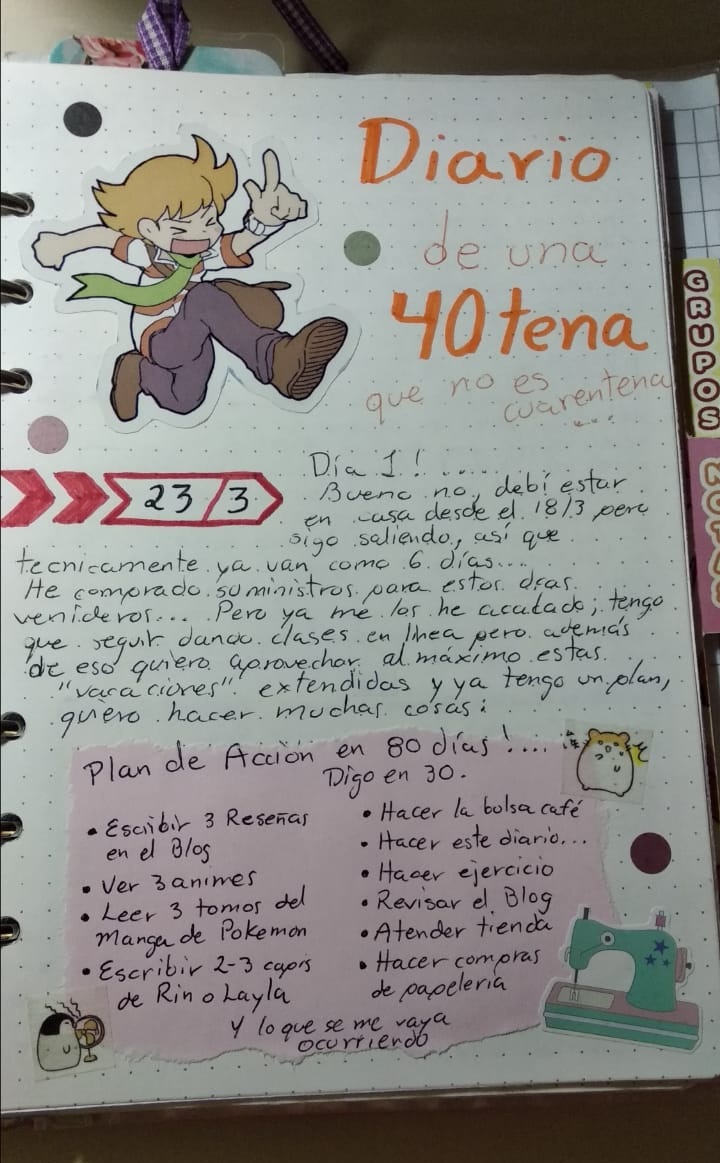 Diario
de una
40tena
que no es
cuarentena
....
GRUPOS
23/3
Día 1! .....
Bueno no, debí estar
en casa desde el 18/3 pero
sigo saliendo, así que
tecnicamente ya van como 6 días...
He comprado suministros para estos días
venideros... Pero ya me los he acabado; tengo
que seguir dando clases en línea pero además
de eso quiero aprovechar al máximo estas
"vacaciones" extendidas y ya tengo un plan,
quiero hacer muchas cosas:
Plan de Acción en 80 días!....
Digo en 30.
• Escribir 3 Reseñas
en el Blog
• Ver 3 animes
• Leer 3 tomos del
Manga de Pokemon
• Escribir 2-3 capis
de Rin o Layla
• Hacer la bolsa café
• Hacer este diario...
• Hacer ejercicio
• Revisar el Blog
• Atender tienda
• Hacer compras
de papelería
Y lo que se me vaya
ocurriendo